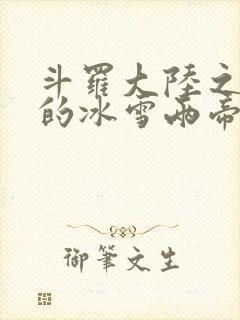 斗羅大陸之
的冰雪兩帝
御筆文生